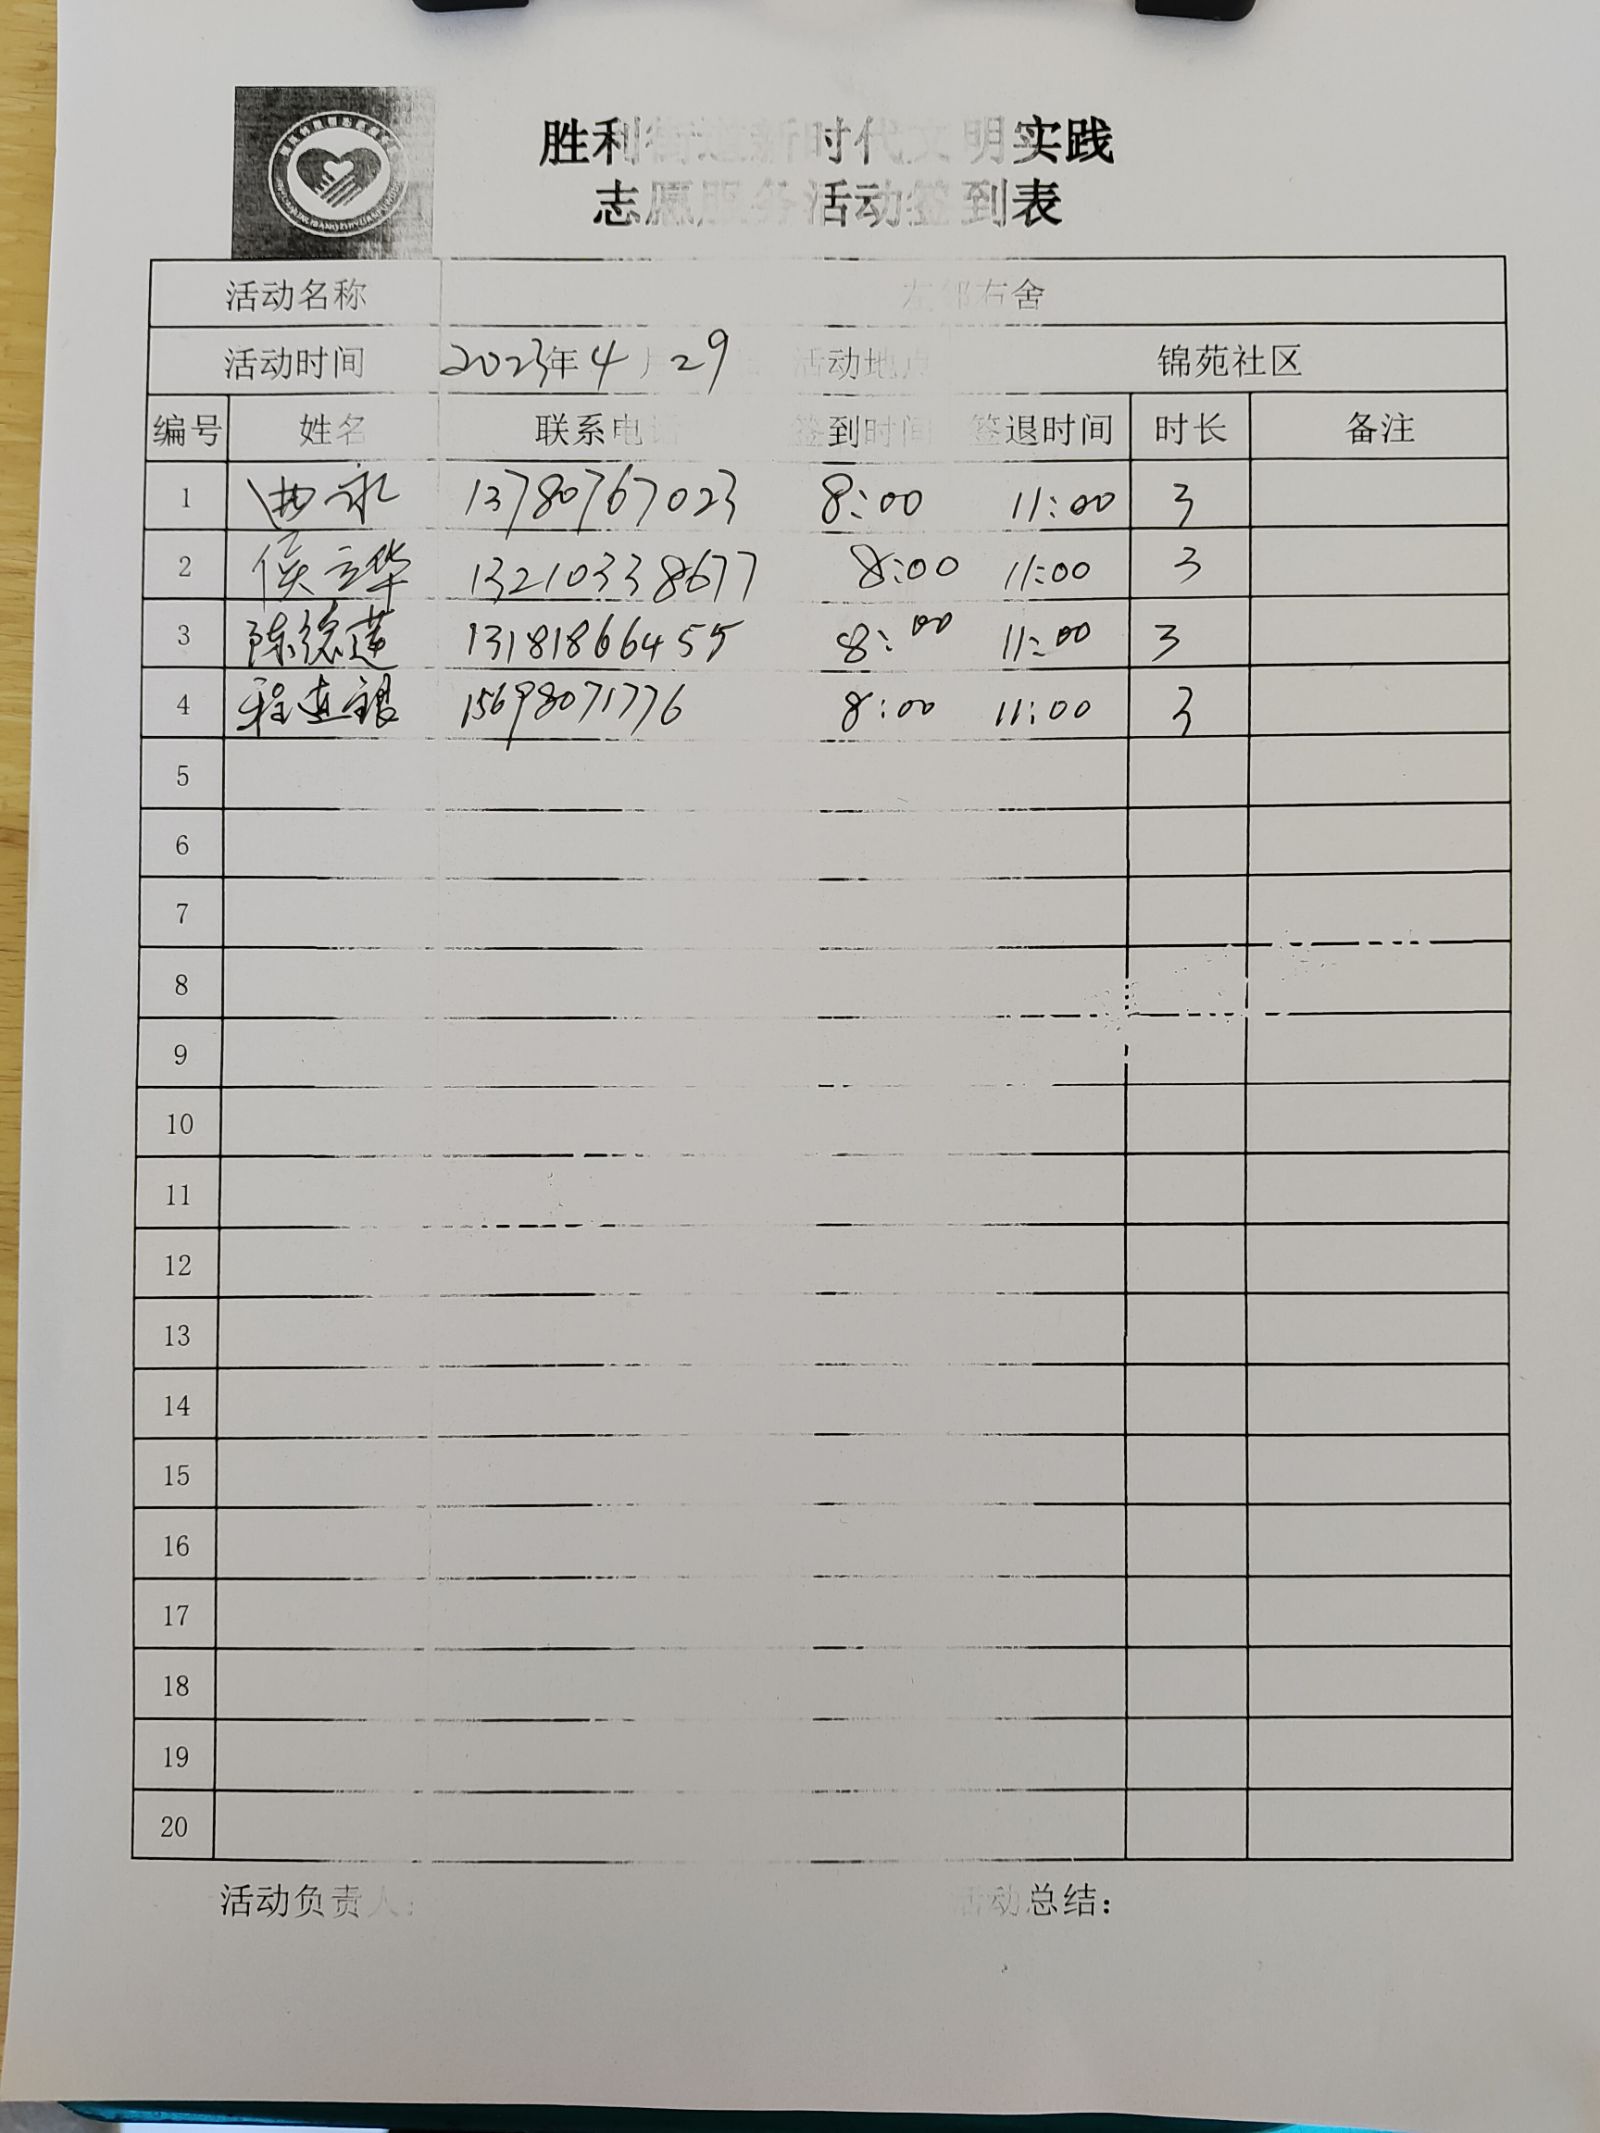 胜利街道新时代文明实践
志愿服务活动签到表
活动名称 左邻右舍
活动时间 2023年4月29 活动地点 锦苑社区
编号 姓名 联系电话 签到时间 签退时间 时长 备注
1 曲永 13780767023 8:00 11:00 3
2 侯立华 13210338677 8:00 11:00 3
3 陈德莲 13181866455 8:00 11:00 3
4 程连银 15698071776 8:00 11:00 3
5
6
7
8
9
10
11
12
13
14
15
16
17
18
19
20
活动负责人： 活动总结：